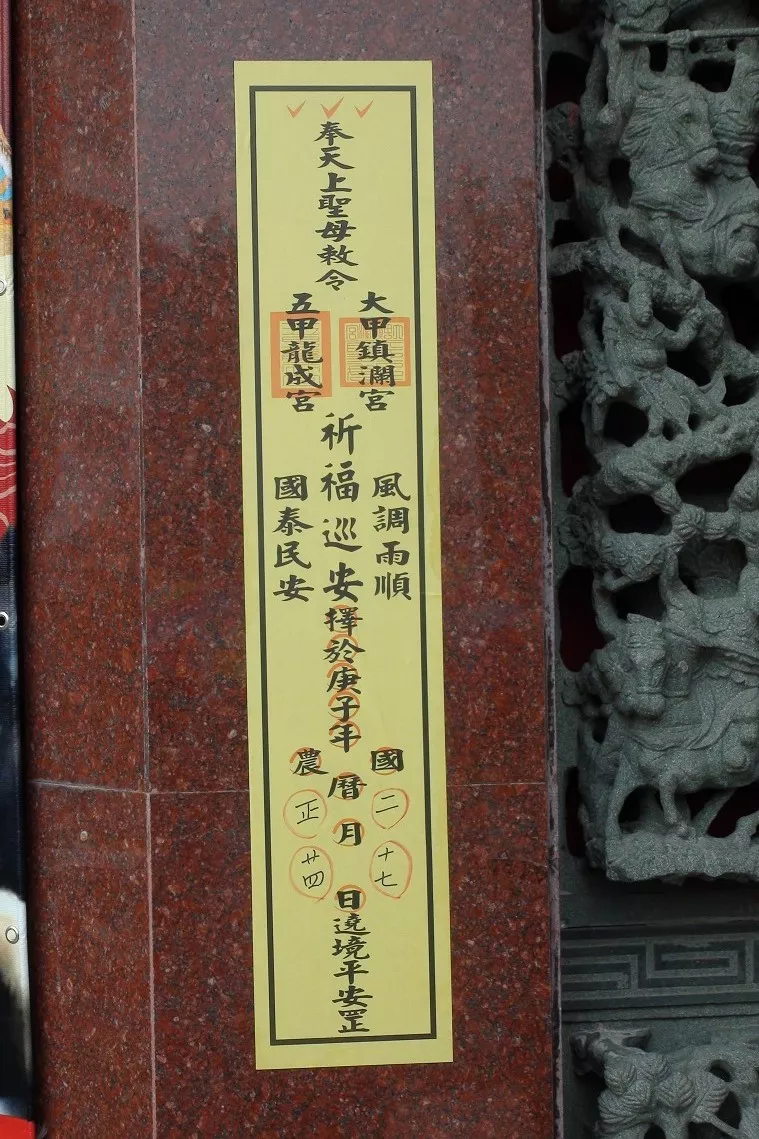 奉天上聖母敕令
大甲鎮瀾宮
五甲龍成宮
祈福巡安
風調雨順
國泰民安
擇於庚子年
國
農
曆
二
正
月
十七
廿四
日遶境平安罡